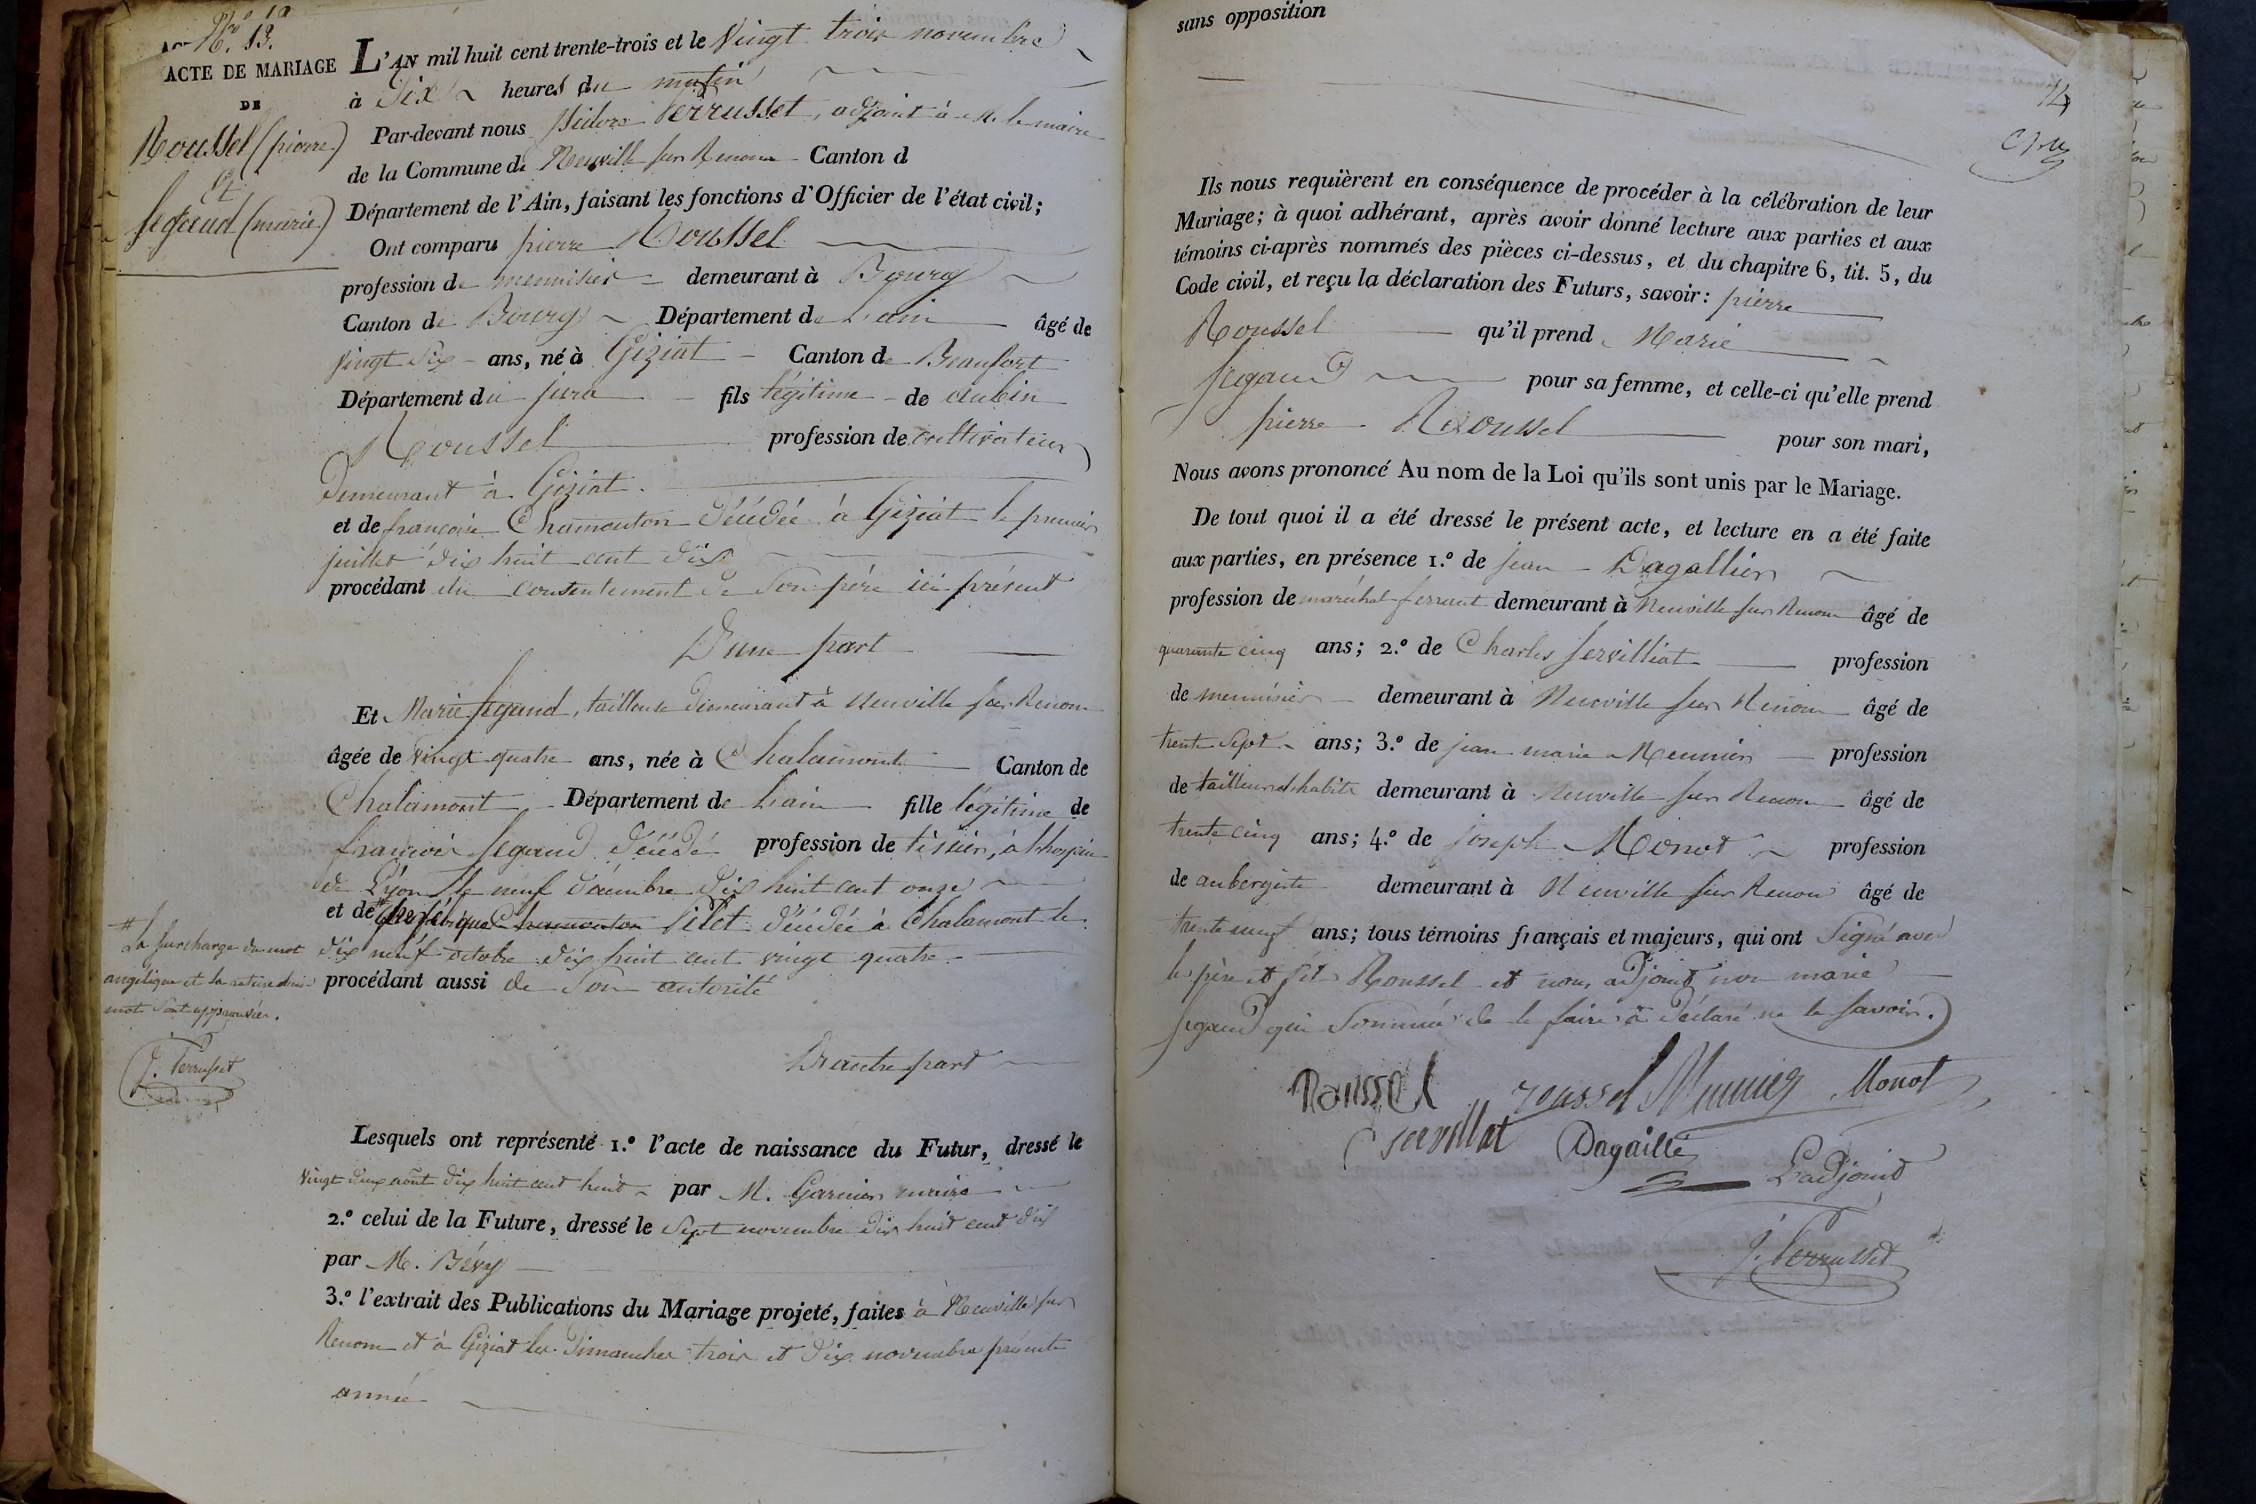 N.º 13.
ACTE DE MARIAGE
DE
Roussel (pierre)
Et
Segaud (marie)
L'AN mil huit cent trente-trois et le Vingt trois novembre
à Dix heures du matin
Par-devant nous isidore Perrusset, adjoint à M. le maire
de la Commune de Neuville sur Renom Canton d
Département de l'Ain, faisant les fonctions d'Officier de l'état civil;
Ont comparu pierre Roussel
profession de menuisier demeurant à Bourg
Canton de Bourg Département de L'ain âgé de
vingt six ans, né à Giziat Canton de Beaufort
Département du jura fils légitime de aubin
Roussel profession de cultivateur
Demeurant à Giziat.
et de françoise Chamouton Décédée à Giziat le premier
juillet dix huit cent dix
procédant du consentement de Son père ici présent
D'une part
Et Marie Segaud, tailleuse demeurant à Neuville sur Renom
âgée de Vingt quatre ans, née à Chalamont Canton de
Chalamont Département de L'ain fille légitime de
françois Segaud Décédé profession de tissier, à l'hospice
de Lyon le neuf décembre dix huit cent onze
et de # angélique Chamouton Pilet décédée à Chalamont le
dix neuf octobre dix huit cent vingt quatre
procédant aussi de Son autorité
D'autre part
# La surcharge du mot
angélique et la rature d'un
mot sont approuvées.
J. Perrusset
Lesquels ont représenté 1.º l'acte de naissance du Futur, dressé le
vingt deux août dix huit cent huit par M. Garnier maire
2.º celui de la Future, dressé le Sept novembre dix huit cent dix
par M. Bévy
3.º l'extrait des Publications du Mariage projeté, faites à Neuville sur
Renom et à Giziat les Dimanches trois et dix novembre présente
année
sans opposition
14
Ils nous requièrent en conséquence de procéder à la célébration de leur
Mariage; à quoi adhérant, après avoir donné lecture aux parties et aux
témoins ci-après nommés des pièces ci-dessus, et du chapitre 6, tit. 5, du
Code civil, et reçu la déclaration des Futurs, savoir: pierre
Roussel qu'il prend Marie
Segaud pour sa femme, et celle-ci qu'elle prend
pierre Roussel pour son mari,
Nous avons prononcé Au nom de la Loi qu'ils sont unis par le Mariage.
De tout quoi il a été dressé le présent acte, et lecture en a été faite
aux parties, en présence 1.º de jean Dagallier
profession de maréchal ferrant demeurant à Neuville sur Renom âgé de
quarante cinq ans; 2.º de Charles Servilliat profession
de menuisier demeurant à Neuville sur Renom âgé de
trente Sept ans; 3.º de jean marie Meunier profession
de tailleur d'habits demeurant à Neuville sur Renom âgé de
trente cinq ans; 4.º de joseph Monot profession
de aubergiste demeurant à Neuville sur Renom âgé de
trente neuf ans; tous témoins français et majeurs, qui ont Signé avec
le père et fils Roussel et nous adjoint non marie
Segaud qui Sommée de le faire à déclaré ne le Savoir.
Roussel roussel Munier Monot
C servillat Dagaillé
L'adjoint
J. Perrusset